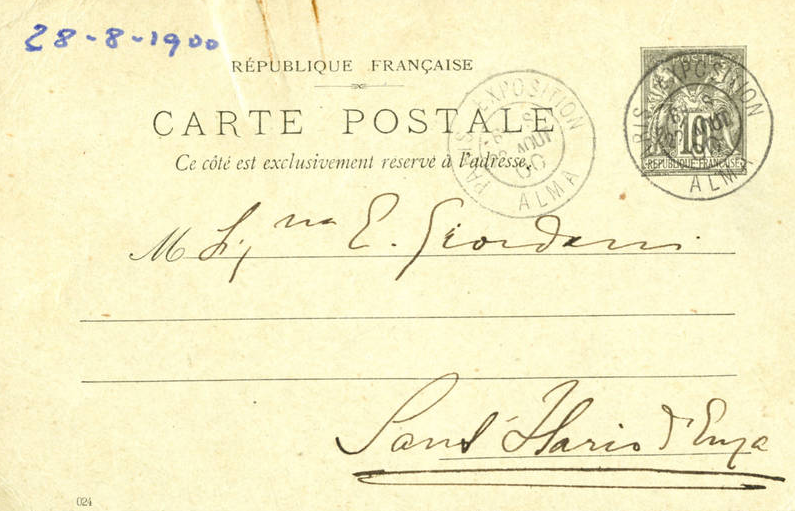 28-8-1900
RÉPUBLIQUE FRANÇAISE
CARTE POSTALE
Ce côté est exclusivement reservé à l'adresse.
PARIS EXPOSITION
AOUT
00
ALMA
POSTES
10
RÉPUBLIQUE FRANÇAISE
EXPOSITION
AOUT
ALMA
M Sig.na E. Giordani
Sant' Ilario d'Enza
024